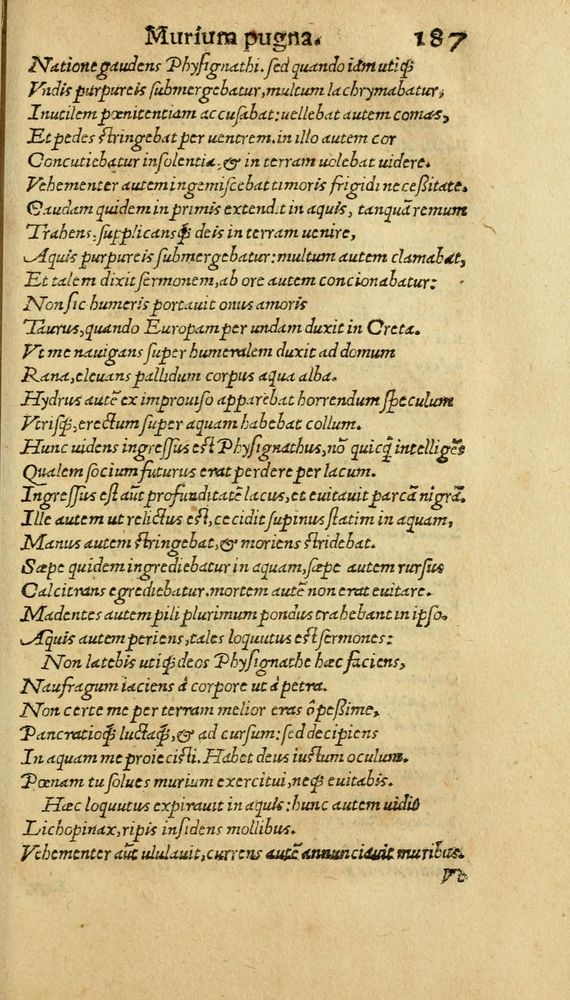 Murium pugna. 187
Natione gaudens Physignathi. sed quando iam utiqꝫ
Vndis purpureis submergebatur, multum lachrymabatur,
Inutilem pœnitentiam accusabat: uellebat autem comas,
Et pedes stringebat per uentrem. in illo autem cor
Concutiebatur insolentia, & in terram uolebat uidere.
Vehementer autem ingemiscebat timoris frigidi neceßitate.
Caudam quidem in primis extendit in aquis, tanquã remum
Trahens. supplicansqꝫ deis in terram uenire,
Aquis purpureis submergebatur: multum autem clamabat,
Et talem dixit sermonem, ab ore autem concionabatur:
Non sic humeris portauit onus amoris
Taurus, quando Europam per undam duxit in Creta.
Vt me nauigans super humeralem duxit ad domum
Rana, eleuans pallidum corpus aqua alba.
Hydrus autẽ ex improuiso apparebat horrendum speculum
Vtrisqꝫ, erectum super aquam habebat collum.
Hunc uidens ingressus est Physignathus, nõ quicq̃ intelligẽs
Qualem socium futurus erat perdere per lacum.
Ingressus est aũt profunditatẽ lacus, et euitauit parcã nigrã.
Ille autem ut relictus est, cecidit supinus statim in aquam,
Manus autem stringebat, & moriens stridebat.
Sæpe quidem ingrediebatur in aquam, sæpe autem rursus
Calcitrans egrediebatur. mortem autẽ non erat euitare.
Madentes autem pili plurimum pondus trahebant in ipso.
Aquis autem periens, tales loquutus est sermones:
Non latebis utiqꝫ deos Physignathe hæc faciens,
Naufragum iaciens à corpore ut à petra.
Non certe me per terram melior eras ô peßime,
Pancratioqꝫ luctaqꝫ, & ad cursum: sed decipiens
In aquam me proiecisti. Habet deus iustum oculum.
Pœnam tu solues murium exercitui, neqꝫ euitabis.
Hæc loquutus expirauit in aquis: hunc autem uidit
Lichopinax, ripis insidens mollibus.
Vehementer aũt ululauit, currens autẽ annunciauit muribus.
Vt